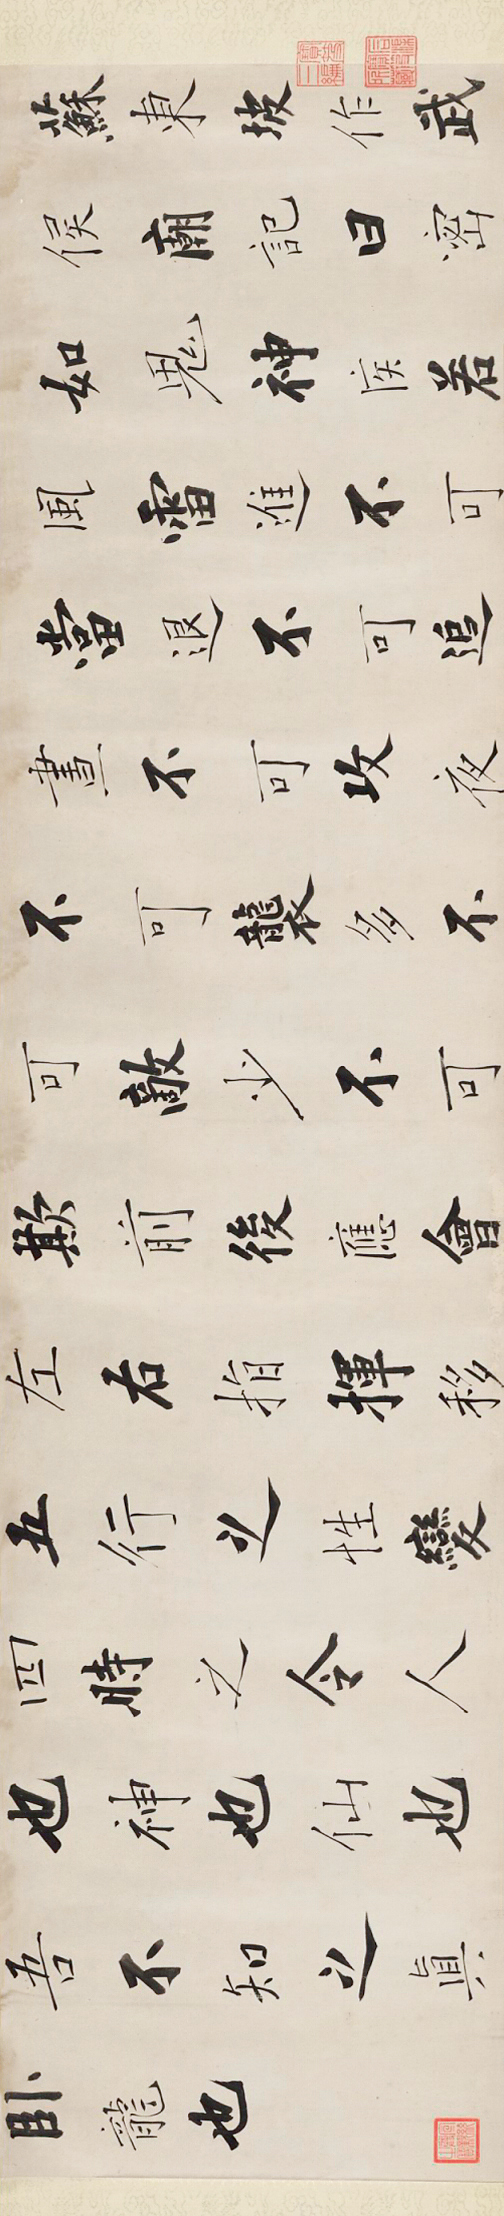 蘇東坡作武
侯廟記曰密
如鬼神疾若
風雷進不可
當退不可追
晝不可攻夜
不可襲多不
可敵少不可
欺前後應會
左右指揮移
五行之性變
四時之令人
也神也仙也
吾不知之眞
臥龍也